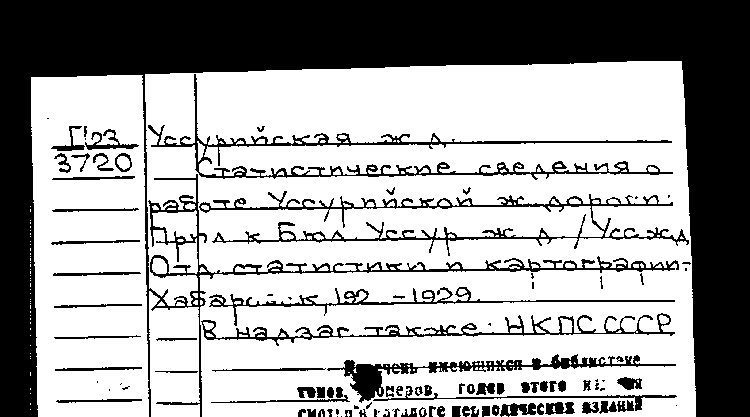 П23
3720
Уссурийская ж. д.
Статистические сведения о
работе Уссурийской ж. дороги:
Прил. к Бюл. Уссур. ж. д. / Усс. ж. д.
Отд. статистики и картографии.-
Хабаровск, 192 -1929.
В надзаг. также: НКПС СССР
Перечень имеющихся в библиотеке
томов, номеров, годов этого
смотри в каталоге периодических изданий